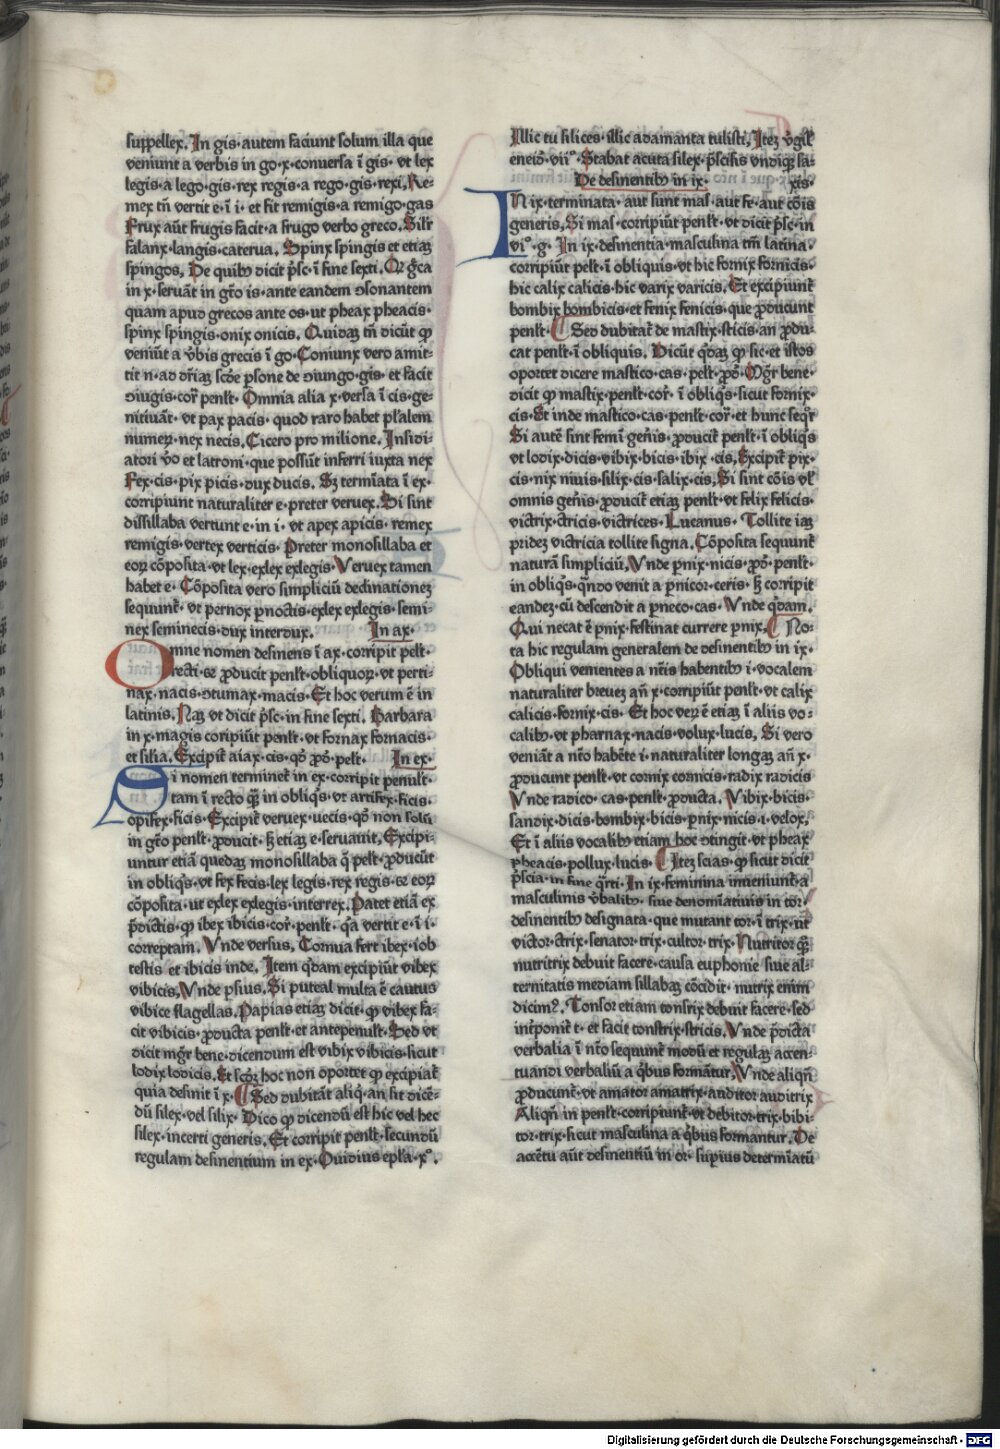 suppellex. In gis· autem faciunt solum illa que
veniunt a verbis in go·x·conuersa ī gis· vt lex
legis a lego·gis·rex regis·a rego·gis·rexi. Re-
mex tn̄ vertit e·ī i· et fit remigis·a remigo·gas
Frux aūt frugis facit·a frugo verbo greco. Silr̄
falanx·langis·caterua. Spinx spingis et etiaꝫ
spingos. De quibꝰ dicit p̄sc·ī fine sexti. Qꝛ gͣca
in x·seruāt in gt̄o is·ante eandem ↄsonantem
quam apud grecos ante os·ut pheax pheacis·
spinx spingis·onix onicis. Quidaꝫ tn̄ dicūt ꝙ
veniūt a v̄bis grecis ī go·Coniunx vero amit-
tit n·ad dr̄iaꝫ scd̄e ꝑsone de ↄiungo·gis· et facit
ↄiugis·corr̄ penlt̄· Omnia alia x·versa ī cis·ge-
nitiuāt· vt pax pacis· quod raro habet pl̄alem
numeꝝ·nex necis. Cicero pro milione. Insidi-
atori v̄o et latroni·que possūt inferri iuxta nex
Fex·cis·pix picis·dux ducis. Sꝫ termīata ī ex·
corripiunt naturaliter e·preter veruex. Si sint
dissillaba vertunt e·in i· vt apex apicis· remex
remigis·vertex verticis· Preter monosillaba et
eoꝝ cōposita·vt lex·exlex exlegis·Veruex tamen
habet e· Cōposita vero simpliciū declinationeꝫ
sequunt̄· vt pernox ꝑnoctis·exlex exlegis·semi-
nex seminecis·dux interdux. In ax·
Omne nomen desinens ī ax·corripit pelt̄·
recti·se ꝓducit penlt̄·obliquoꝝ·vt perti-
nax·nacis·ↄtumax·macis· Et hoc verum ē in
latinis. Naꝫ vt dicit p̄sc·in fine sexti. Barbara
in x·magis coripiūt penlt̄·vt fornax fornacis·
et silia. Excipit̄ aiax·cis·qd̄ ꝓd̄·pelt̄. In ex·
Si nomen terminet̄ in ex·corripit penult̄·
tam ī recto qͣꝫ in obliqͥs·vt artifex·ficis·
opifex·ficis· Excipit̄ veruex·uecis·qd̄ non solū
in gt̄o penlt̄·ꝓducit·sꝫ etiaꝫ e·seruauit. Excipi-
untur etiā quedaꝫ monosillaba q̄ pelt̄·ꝓducūt
in obliqͥs·vt fex fecis·lex legis·rex regis·et eoꝝ
cōposita·ut exlex exlegis·interrex. Patet etiā ex
p̄dictis·ꝙ ibex ibicis·cor̄·penlt̄·qͣ vertit e·ī i·
correptam. Vnde versus. Cornia fert ibex·iob
testis et ibicis inde. Item qͥdam excipiūt vibex
vibicis. Vnde ꝑsius. Si puteal multa ē cautus
vibice flagellas. Papias etiaꝫ dicit·ꝙ vibex fa-
cit vibicis·ꝓducta penlt̄·et antepenult̄· Sed vt
dicit mgr̄ bene·dicendum est vibix vibicis·sicut
lodix lodicis. Et scd̄ꝫ hoc non oportet ꝙ excipiat̄
quia desinit ī x· Sed dubitāt aliqͥ·an sit dicē-
dū silex·vel silix· Dico ꝙ dicendū est hic vel hec
silex·incerti generis. Et corripit penlt̄·secundū
regulam desinentium in ex·Ouidius epl̄a·xͦ.
Illic tu silices·illic adamanta tulisti. Iteꝫ v̄gil̄
eneiđ·viiͦ· Stabat acuta silex·p̄scisis vndiqꝫ sa-
De desinentibꝰ in ix· xis·
In ix·terminata·aut sunt mas̄·aut fe·aut cōis
generis. Si mas̄·corripiūt penlt̄·vt dicit p̄sc·in
viͦ·g· In ix·desinentia·masculina tm̄ latina·
corripiūt pelt̄·ī obliquis·vt hic fornix fornicis·
hic calix calicis·hic varix varicis. Et excipiunt̄
bombix bombicis·et fenix fenicis·que ꝓducunt
penlt̄· Sed dubitat̄ de mastix·sticis·an ꝓdu-
cat penlt̄·ī obliquis. Dicūt qͥdaꝫ ꝙ sic·et istos
oportet dicere mastico·cas·pelt̄·ꝓd̄· Mgr̄ bene·
dicit ꝙ mastix·penlt̄·cor̄·ī obliqͥs·sicut fornix·
cis·Et inde mastico·cas·penlt̄·cor̄·et hunc seqͥr
Si autē sint femī gen̄is·ꝓducit̄ penlt̄·ī obliqͥs
vt lodix·dicis·vibix·bicis·ibix·cis. Excipit̄ pix·
cis·nix niuis·silix·cis·salix·cis. Si sint cōis vl̄
omnis gen̄is·ꝓducit̄ etiaꝫ penlt̄·vt felix felicis·
victrix·ctricis·victrices·Lucanus· Tollite iaꝫ
prideꝫ victricia tollite signa. Cōposita sequunt̄
naturā simpliciū. Vnde ꝑnix·nicis·ꝓd̄·penlt̄·
in obliqͥs·qn̄do venit a ꝑnicor·ceris·sꝫ corripit
eandeꝫ·cū descendit a ꝑneco·cas· Vnde qͥdam.
Qui necat ē ꝑnix·festinat currere ꝑnix. No-
ta hic regulam generalem de desinentibꝰ in ix·
Obliqui venientes a nt̄is habentibꝰ i·vocalem
naturaliter breueꝫ an̄ x·corripiūt penlt̄·vt calix
calicis·fornix·cis· Et hoc veꝝ ē etiaꝫ ī aliis vo-
calibꝰ·vt pharnax·nacis·volux·lucis. Si vero
veniāt a nt̄o habēte i·naturaliter longaꝫ an̄ x·
ꝓducunt penlt̄·vt cornix cornicis·radix radicis
Vnde radico·cas·penlt̄·ꝓducta. Vibix·bicis·
sandix·dicis·bombix·bicis·ꝑnix·nicis·i·velox.
Et ī aliis vocalibꝰ etiam hoc ↄtingit·vt pheax
pheacis·pollux·lucis. Iteꝫ scias·ꝙ sicut dicit
p̄scia·in fine qͣrti·In ix·feminina inueniunt̄·a
masculinis v̄balibꝰ·siue denomīatiuis in tor·
desinentibꝰ designata·que mutant tor·ī trix·vt
victor·ctrix·senator·trix·cultor·trix·Nutritor qͣꝫ
nutritrix debuit facere·causa euphonie siue al-
ternitatis mediam sillabaꝫ cōcidit·nutrix enim
dicimꝰ. Tonsor etiam tonsrix debuit facere·sed
int̄ponit̄ t·et facit tonstrix·stricis. Vnde p̄dicta
verbalia ī nt̄o sequunt̄ modū et regulaꝫ accen-
tuandi verbaliū a qͥbus formātur. Vnde aliqn̄
ꝓducunt̄·vt amator amatrix·auditor auditrix
Aliqn̄ in penlt̄·corripiunt̄·vt debitor·trix·bibi-
tor·trix·sicut masculina a qͥbus formantur. De
accētu aūt desinentiū in or·supius determīatū
Digitalisierung gefördert durch die Deutsche Forschungsgemeinschaft - DFG